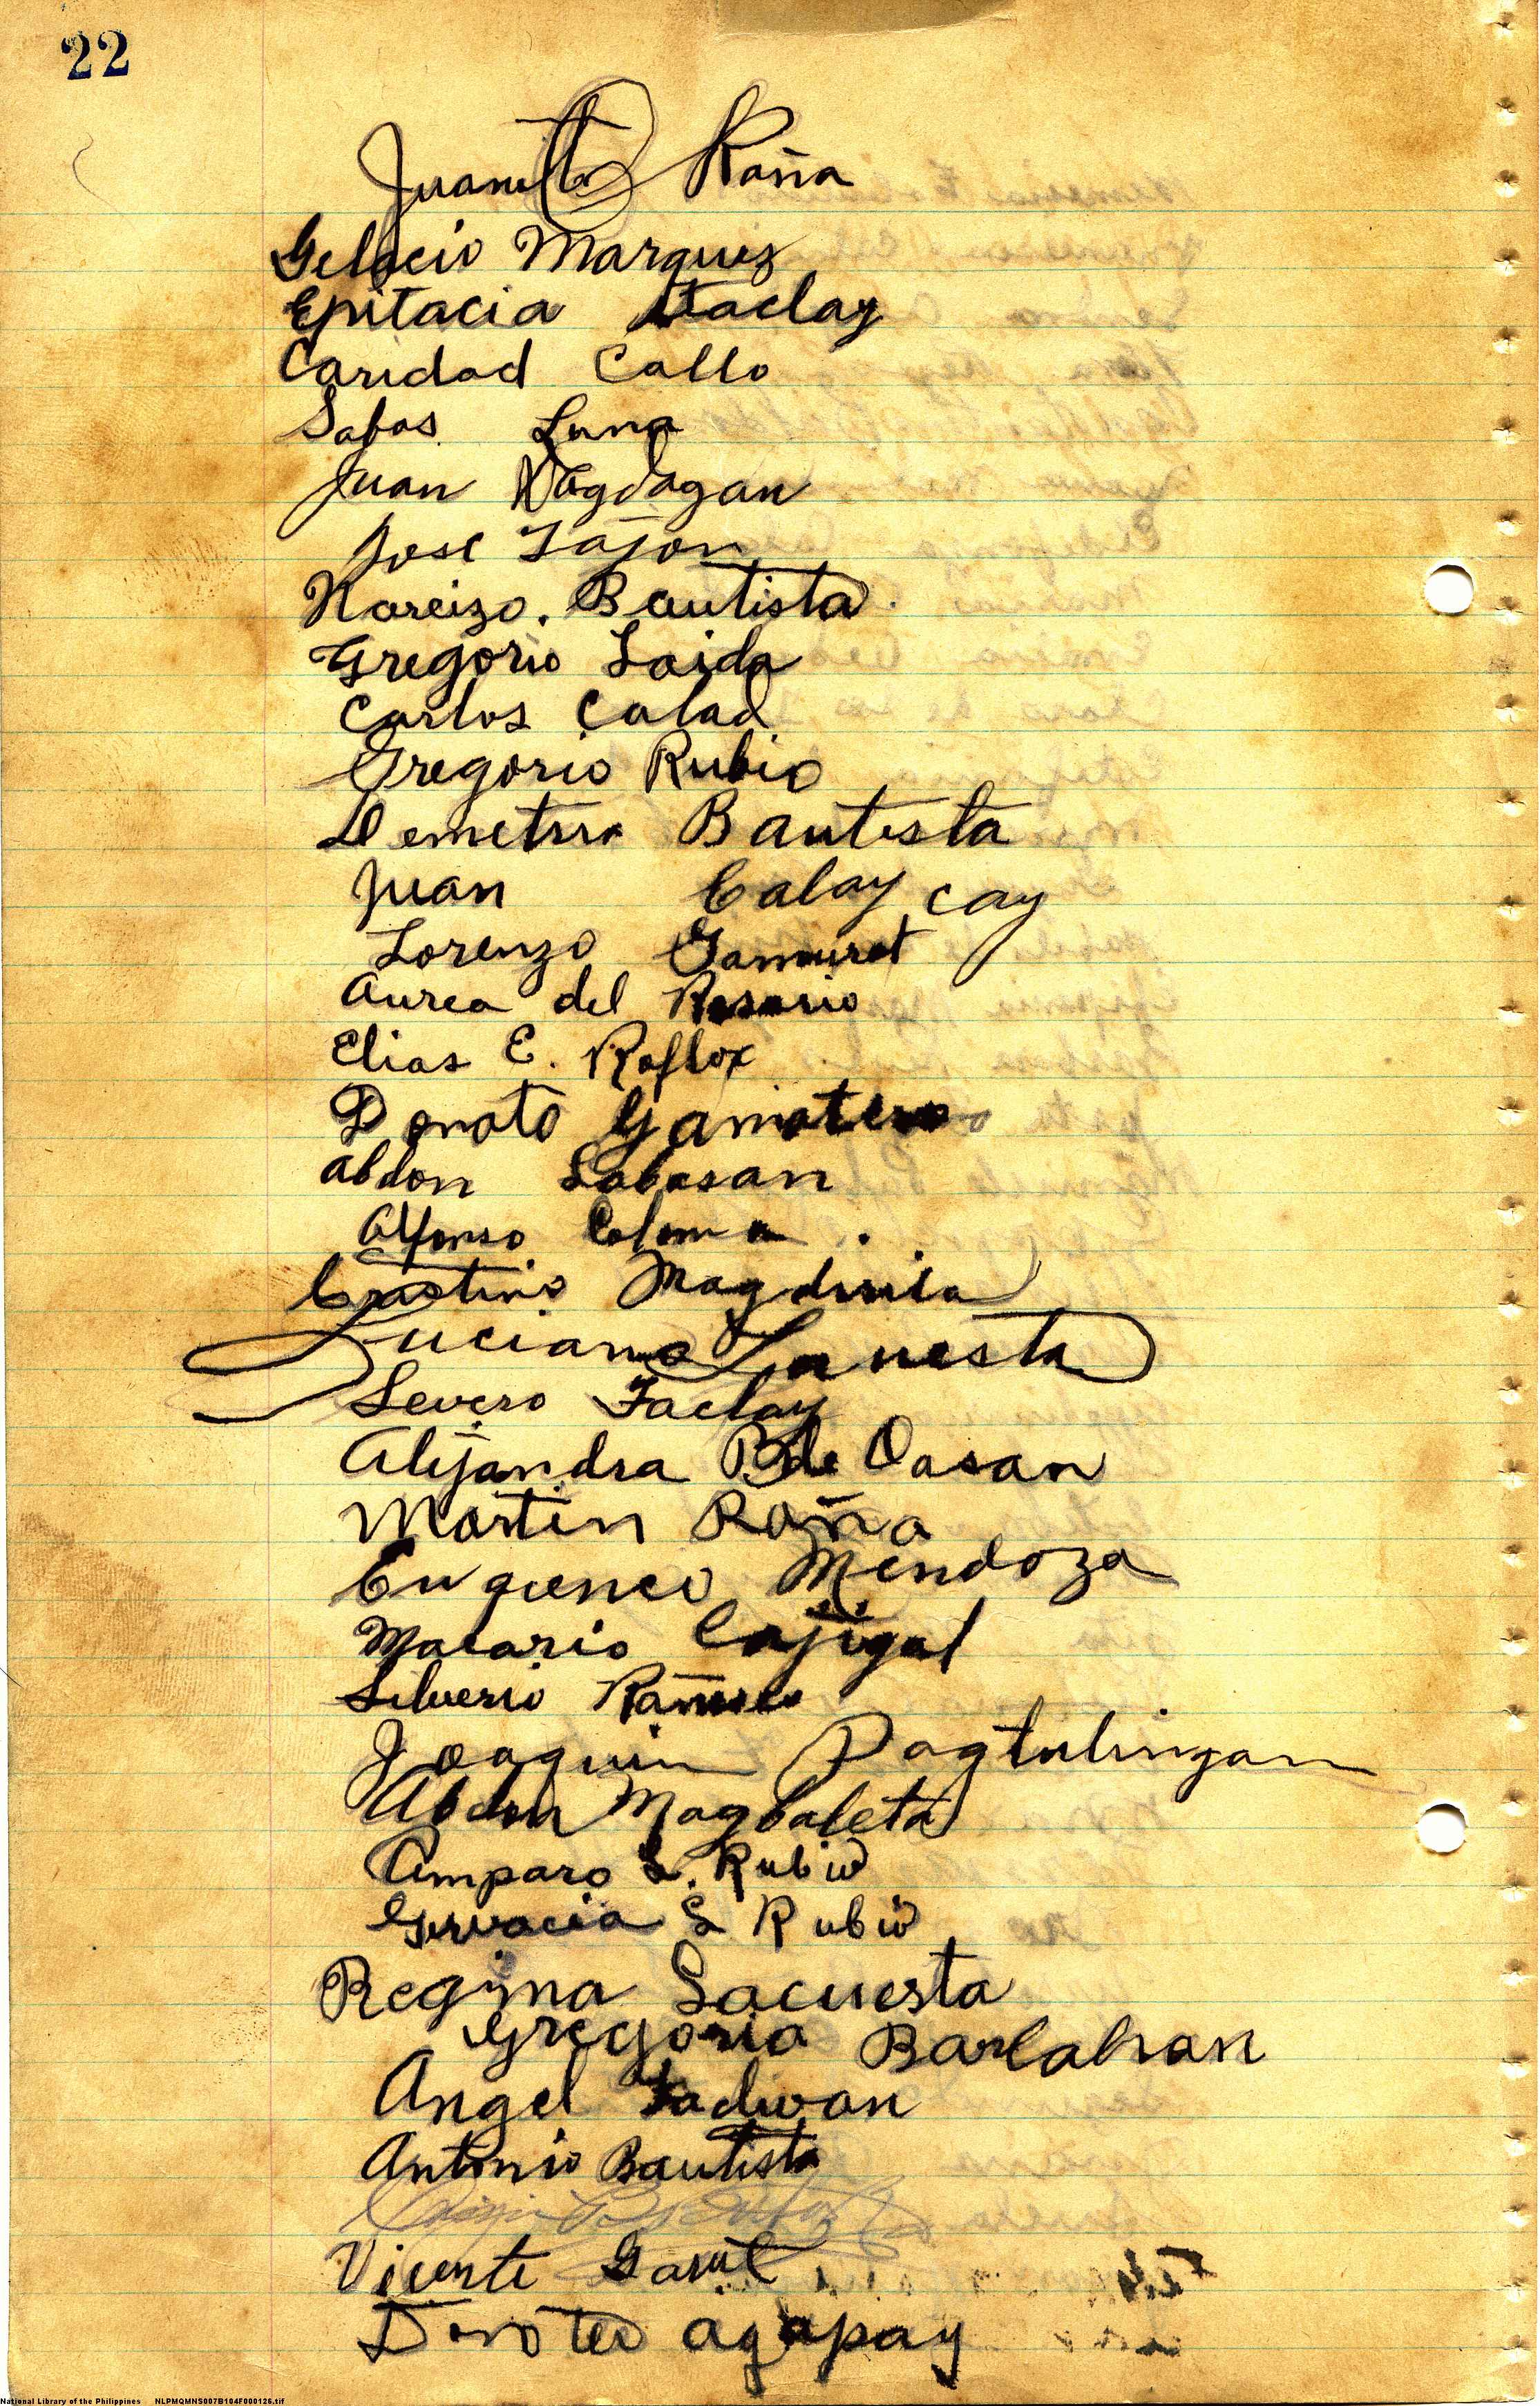 22
Juanito Raña
Gelacio Marquez
Epitacia Taclay
Caridad Callo
Sabas Luna
Juan Dagdagan
Jose Tajon
Narcizo. Bautista
Gregorio Laida
Carlos Calad
Gregorio Rubio
Demetria Bautista
Juan Calaycay
Lorenzo Gamurot
Aurea del Rosario
Elias E. Roflox
Donato Gamotero
Abdon Labasan
Alfonso Coloma
Magdirila
Luciano
Severo Taclay
Alejandra B de Oasan
Martin Raña
Eugenio Mendoza
Macario Cajigal
Silverio
Joaquin Pagtulingan
Abdon Magbaleta
Amparo L. Rubio
Gervacia L Rubio
Regina Lacuesta
Gregoria Barlahan
Angel Tadwan
Antonio Bautista
Vicente Garut
Doroteo Agapay
National Library of the Philippines NLPMQMNS007B104F000126.tif